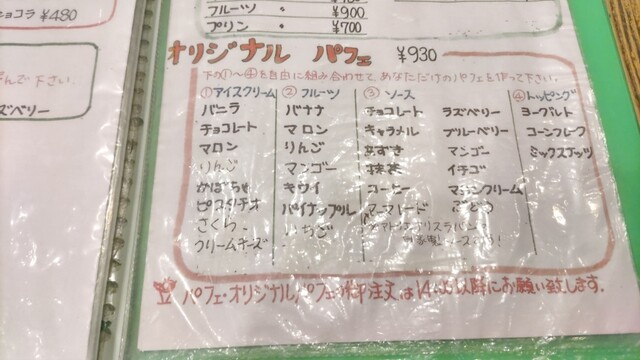 ョコラ ¥480
んで下さい.
ズベリー
フルーツ 〃 ¥900
プリン 〃 ¥700
オリジナル パフェ ¥930
下の①〜④を自由に組み合わせて、あなただけのパフェを作って下さい.
①アイスクリーム ②フルーツ ③ソース ④トッピング
バニラ バナナ チョコレート ラズベリー ヨーグルト
チョコレート マロン キャラメル ブルーベリー コーンフレーク
マロン りんご あずき マンゴー ミックスナッツ
りんご マンゴー 抹茶 イチゴ
かぼちゃ キウイ コーヒー マロンクリーム
ピスタチオ パイナップル マーマレード ぶどう
さくら いちご
クリームチーズ
パフェ・オリジナルパフェの御注文は14:00以降にお願い致します.